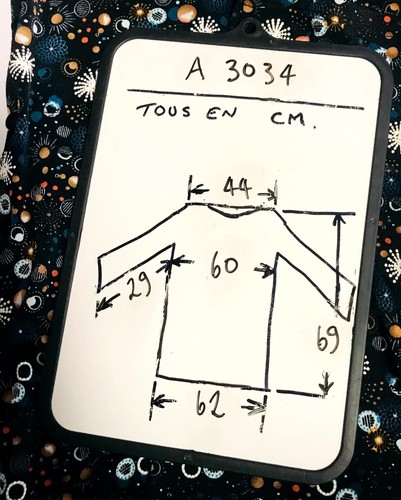 A 3034
TOUS EN CM.
44
29
60
69
62